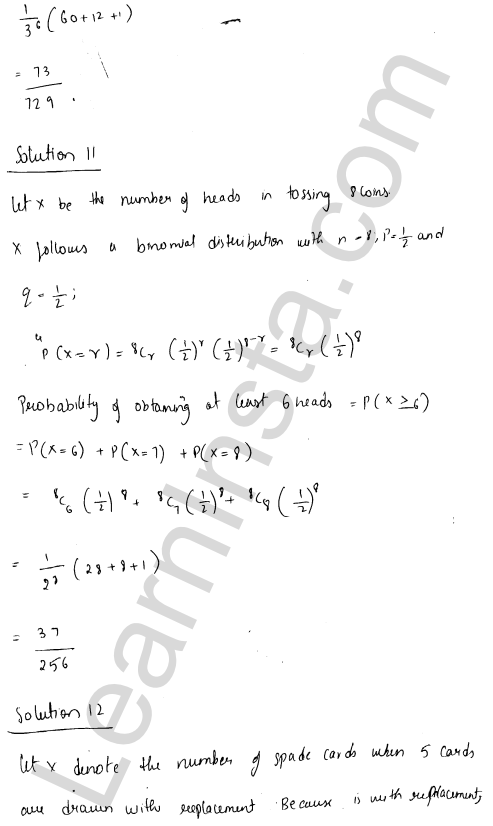 1/3⁶ (60+12+1)
= 73/729 .
Solution 11
Let x be the number of heads in tossing 8 coins.
X follows a binomial distribution with n = 8, P = 1/2 and
q = 1/2 ;
P(x=r) = ⁸Cᵣ (1/2)ʳ (1/2)⁸⁻ʳ = ⁸Cᵣ (1/2)⁸
Probability of obtaining at least 6 heads = P(x ≥ 6)
= P(x=6) + P(x=7) + P(x=8)
= ⁸C₆ (1/2)⁸ + ⁸C₇ (1/2)⁸ + ⁸C₈ (1/2)⁸
= 1/2⁸ (28+8+1)
= 37/256
Solution 12
Let x denote the number of spade cards when 5 cards
are drawn with replacement. Because is with replacement,
LearnInsta.com